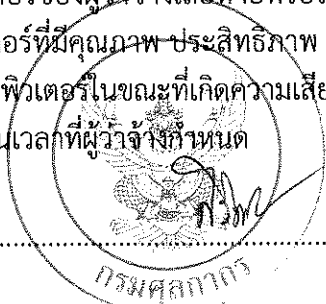 อร์ที่มีคุณภาพ ประสิทธิภาพ
พิวเตอร์ในขณะที่เกิดความเสีย
นเวลาที่ผู้ว่าจ้างกำหนด
กรมศุลกากร